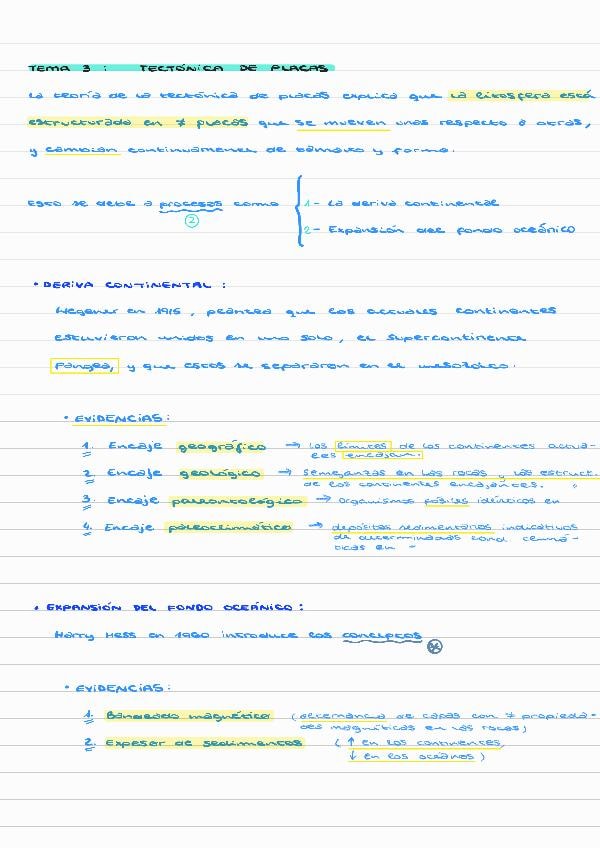 TEMA 3 : TECTÓNICA DE PLACAS
La teoría de la tectónica de placas explica que la litosfera está
estructurada en 7 placas que se mueven unas respecto a otras,
y cambian continuamente de tamaño y forma.
Esto se debe a procesos como
2
1- La deriva continental
2- Expansión del fondo oceánico
• DERIVA CONTINENTAL :
Wegener en 1915, plantea que los actuales continentes
estuvieron unidos en uno solo, el supercontinente
Pangea, y que estos se separaron en el mesozoico.
• EVIDENCIAS:
1. Encaje geográfico → los límites de los continentes actua-
les encajan.
2. Encaje geológico → Semejanzas en las rocas y las estruct.
de los continentes encajantes. "
3. Encaje paleontológico → Organismos fósiles idénticos en
4. Encaje paleoclimático → depósitos sedimentarios indicativos
de determinadas cond. climá-
ticas en "
• EXPANSIÓN DEL FONDO OCEÁNICO :
Harry Hess en 1960 introduce los conceptos *
• EVIDENCIAS:
1. Bandeado magnético (alternancia de capas con ≠ propieda-
des magnéticas en las rocas)
2. Espesor de sedimentos (↑ en los continentes,
↓ en los océanos)